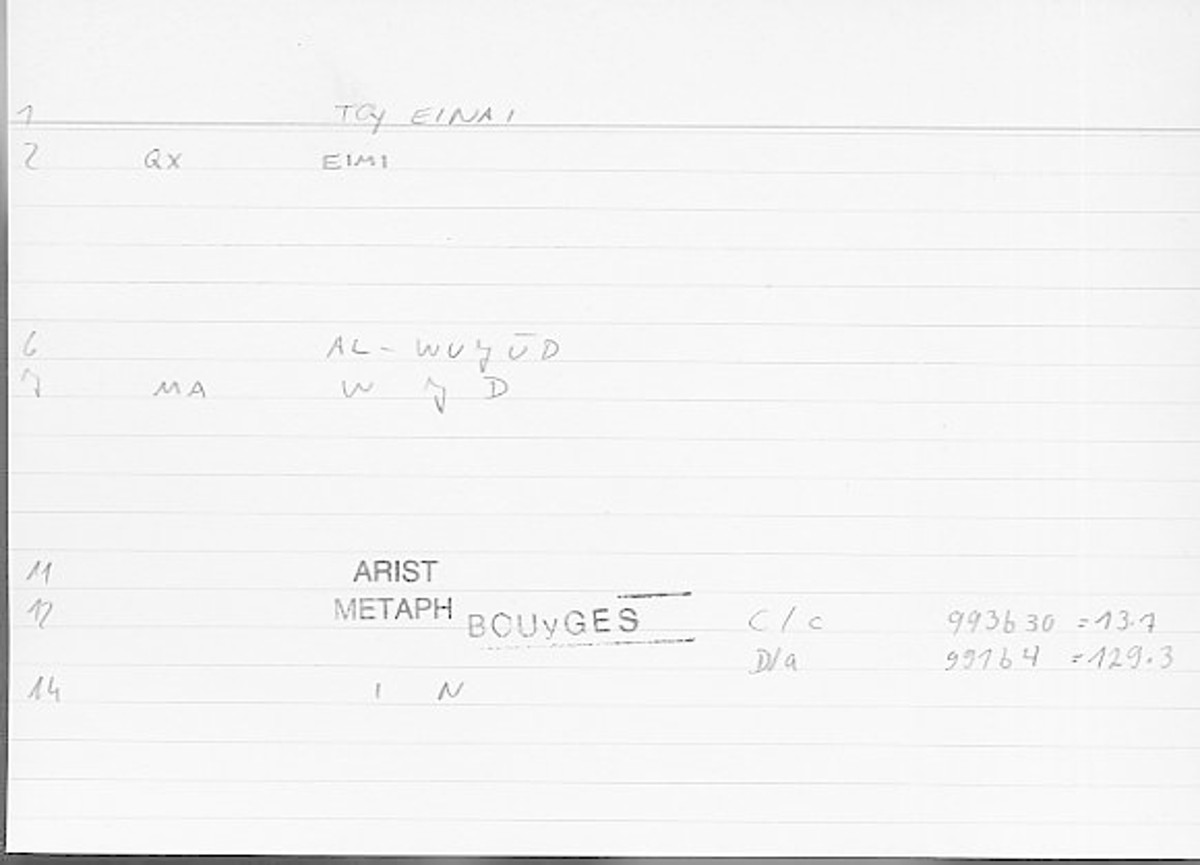 1 TOy EINAI
2 QX EIMI
6 AL-WUJŪD
7 MA W J D
11 ARIST
12 METAPH BOUyGES C/c 993b30 =13.7
D/a 997b4 =129.3
14 I N